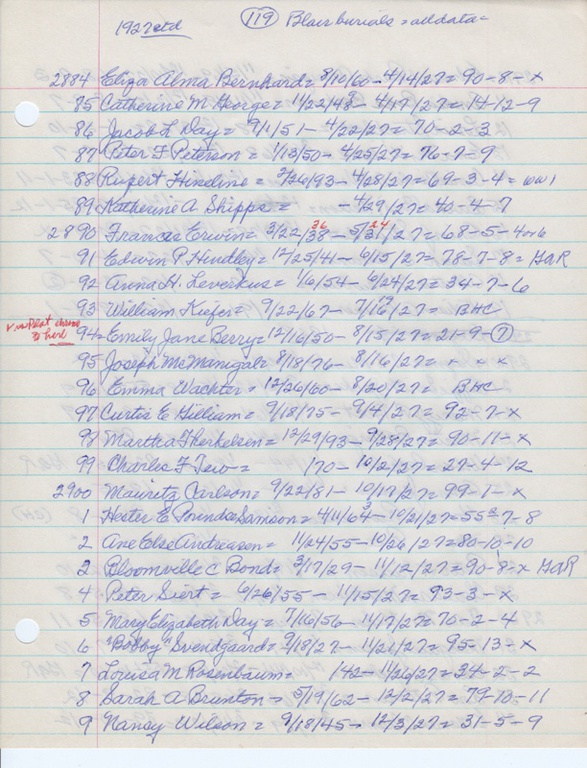 1927ctd (119) Blair burials = all data =
2884 Eliza Alma Bernhard = 8/10/60 - 4/14/27 = 90-8-x
85 Catherine M George = 11/22/48 - 4/17/27 = 14-12-9
86 Jacob L Day = 9/1/51 - 4/22/27 = 70-2-3
87 Peter F Peterson = 1/13/50 - 4/25/27 = 76-7-9
88 Rupert Hineline = 2/26/93 - 4/28/27 = 69-3-4 = WW1
89 Katherine A Shipps = - 4/29/27 = 40-4-7
2890 Francis Erwin = 3/22/38 36 - 5/31/27 24 = 68-5-4 or 6
91 Edwin P. Hindley = 12/25/41 - 6/15/27 = 78-7-8 = GAR
92 Anna H. Leverkus = 1/6/54 - 6/24/27 = 34-7-6
93 William Kiefer = 9/22/67 - 7/16/27 = BHC
94 Emily Jane Berry = 12/16/50 - 8/15/27 = 21-9-(7)
95 Joseph McManigal = 8/18/76 - 8/16/27 = x x x
96 Emma Wachter = 12/26/60 - 8/20/27 = BHC
97 Curtis E Gilliam = 9/18/75 - 9/4/27 = 92-7-x
98 Martha Therkelsen = 12/29/93 - 9/28/27 = 90-11-x
99 Charles F Tew = /70 - 10/2/27 = 27-4-12
2900 Mauritz Carlson = 9/22/81 - 10/17/27 = 99-1-x
1 Hester E Pounds Samson = 4/11/64 3 - 10/21/27 = 55-7-8
2 Ane Else Andreasen = 11/24/55 - 10/26/27 = 80-10-10
2 Bloomville C Bond = 3/17/29 - 11/12/27 = 90-8-x GAR
4 Peter Siert = 6/26/55 - 11/15/27 = 93-3-x
5 Mary Elizabeth Day = 7/16/56 - 11/17/27 = 70-2-4
6 "Bobby" Svendgaard = 9/18/27 - 11/21/27 = 95-13-x
7 Louisa M Rosenbaum = 1842 - 11/26/27 = 34-2-2
8 Sarah A Brunton = 5/19/62 - 12/2/27 = 79-10-11
9 Nancy Wilson = 9/18/45 - 12/3/27 = 31-5-9